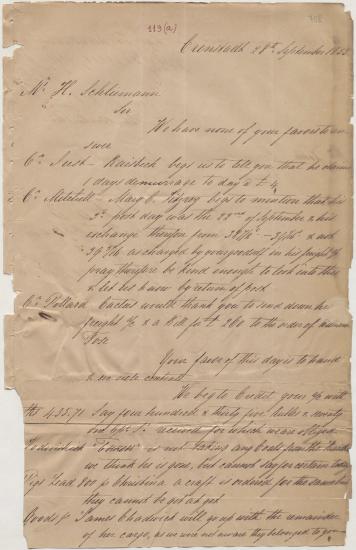 119(a)
Cronstadt 28th September 1853
Mr H. Schliemann
Sir
We have none of your favors to an
swer
Ct Just - Raisbeck begs us to tell you that he claims
days demurrage to day a £ 4
Ct Mitchell - Mary begs to mention that his
3d post day was the 22nd of September & his
exchange therefore from 38 1/16 - & not
39 7/16 as charged by overgoodolf in his freight a/c
pray therefore be kind enough to look into this
& let us know by return of post
Ct Pollard Cactus would thank you to send down his
freight a/c & a Bill for £ 260 to the order of
Your favor of this day is to hand
& we note contents
We beg to Credit your a/c with
Ro 435.71 Say four hundred & thirty five rubles & seventy
one cops S: received for which we are obliged
is not taking any Coals from the
we think he is gone, but cannot say for certain today
Pigs Lead Christina a craft is ordered for the same but
they cannot be got at yet
Goods p James Chadwick will go up with the remainder
of her cargo, as we were not aware they belonged to you